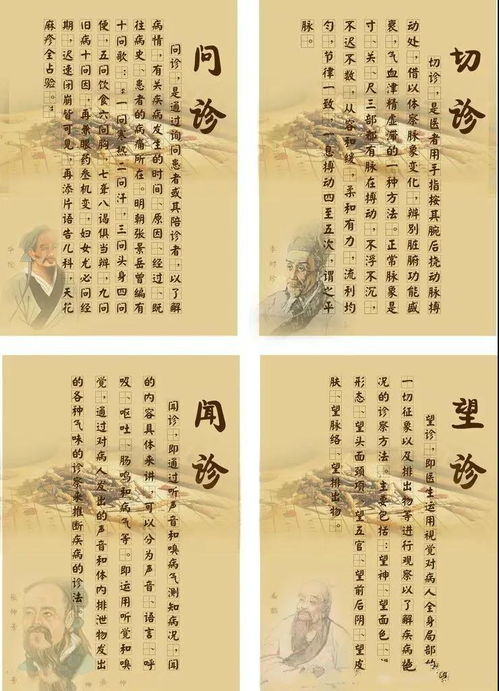 问诊
问诊，是通过询问患者或其陪诊者，以了解
病情，有关疾病发生的时间、原因、经过、既
往病史、患者的病痛所在。明朝张景岳曾编有
十问歌：：一问寒热二问汗，三问头身四问
便，五问饮食六问胸，七聋八渴俱当辨，九问
旧病十问因，再兼服药参机变，妇女尤必问经
期，迟速闭崩皆可见，再添片语告儿科，天花
麻疹全占验。
华佗
切诊
切诊，是医者用手指按其腕后桡动脉搏
动处，借以体察脉象变化，辨别脏腑功能盛
衰，气血津精虚滞的一种方法。正常脉象是
寸、关、尺三部都有脉在搏动，不浮不沉，
不迟不数，从容和缓，柔和有力，流利均
匀，节律一致，一息搏动四至五次，谓之平
脉。
李时珍
闻诊
闻诊，即通过听声音和嗅病气测知病况，闻
的内容具体来讲，可以分为声音、语言、呼
吸、呕吐、肠鸣和病气等。即运用听觉和嗅
觉，通过对病人发出的声音和体内排泄物发出
的各种气味的诊察来推断疾病的诊法
张仲景
望诊
望诊，即医生运用视觉对病人全身局部的
一切征象以及排出物等进行观察以了解疾病
况的诊察方法。主要包括：望神、望面色、
形态、望头面颈项、望五官、望前后阴、望皮
肤、望脉络、望排出物。
扁鹊